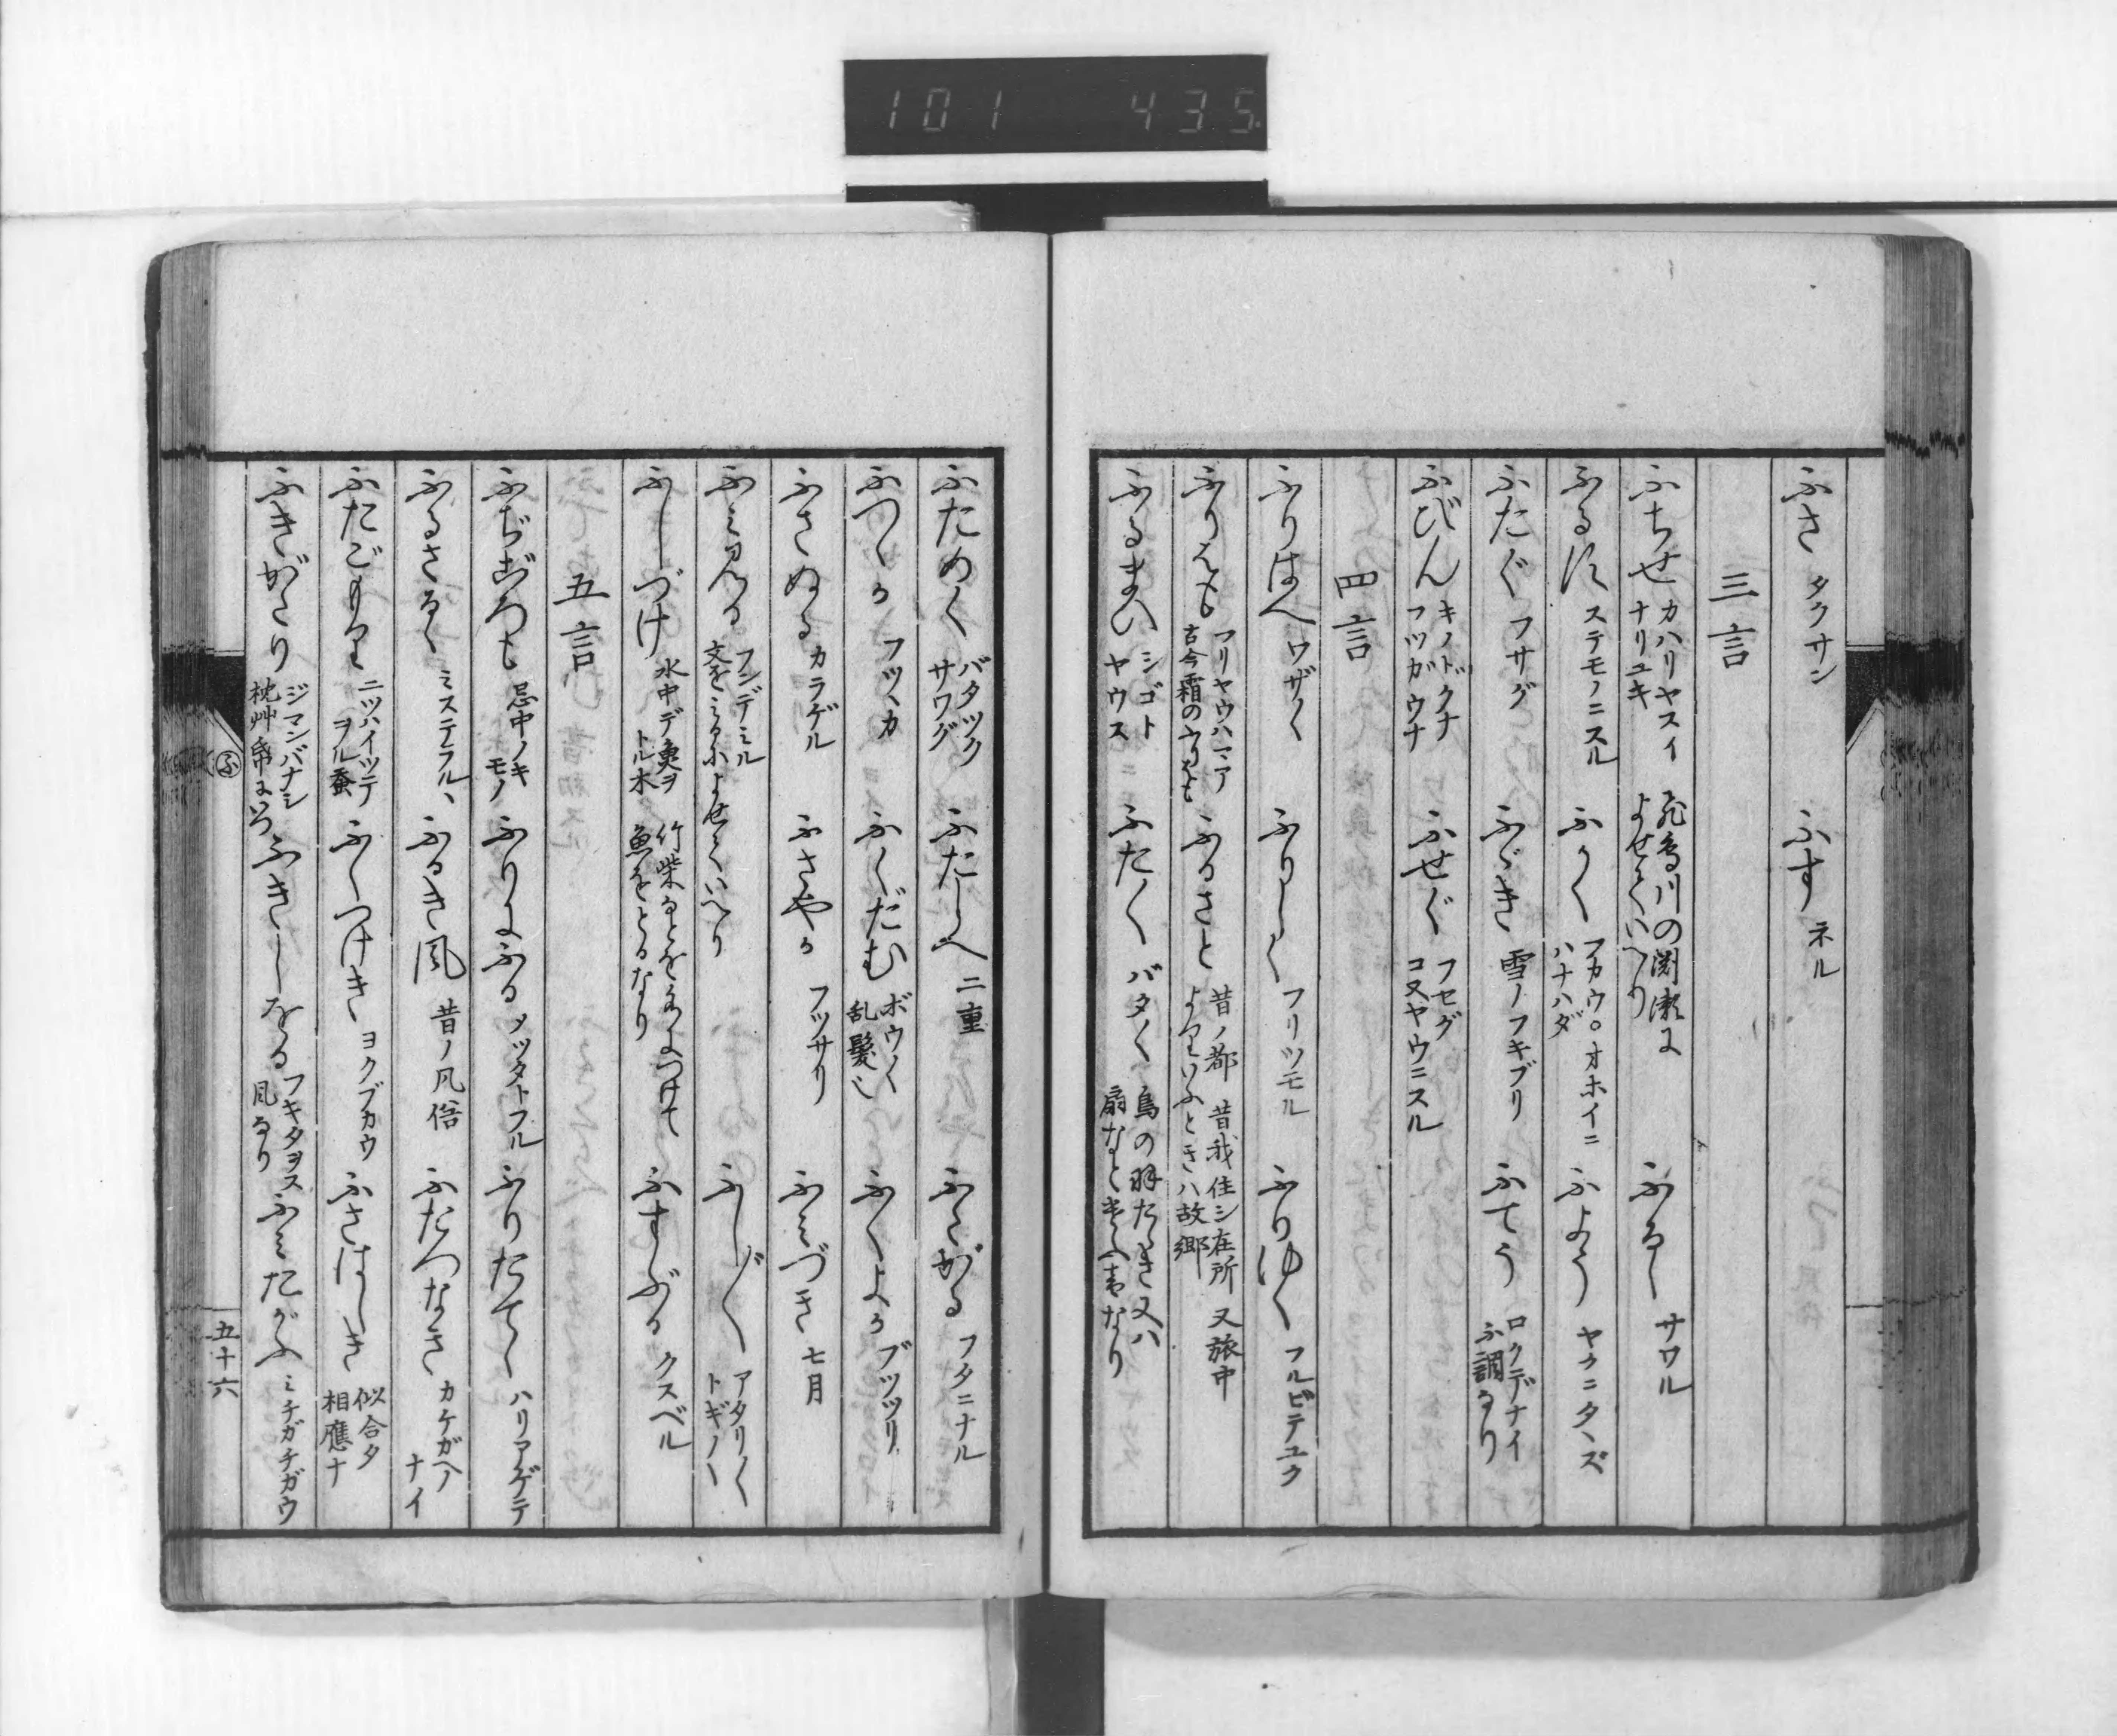 101 435
ふさ タクサン ふす ネル
三言
ふちせ カハリヤスイ ナリユキ 飛鳥川の淵瀬に よせていへり ふるゝ サワル
ふるす ステモノニスル ふかく フカウ。オホイニ ハナハダ ふよう ヤクニタヽズ
ふたぐ フサグ ふゞき 雪ノフキブリ ふてう ロクデナイ ふ調なり
ふびん キノドクナ フツガウナ ふせぐ フセグ コヌヤウニスル
四言
ふりはへ ワザ〱 ふりしく フリツモル ふりゆく フルビテユク
ふりはも フリヤウハマア 古今霜の ふるさと 昔ノ都 昔我住シ在所 又旅中 よりいふときハ故郷
ふるまひ シゴト ヤウス ふた〱 バタ〱 鳥の羽たゝき又ハ 扇なと なり
ふためく バタツク サワグ ふたしへ 二重 ふたがる フタニナル
ふつゝか フツヽカ ふくだむ ボウ〱 乱髪 ふくよか ブツツリ
ふさぬる カラゲル ふさやか フツサリ ふみづき 七月
ふみ見る フンデミル 文をみるによせていへり ふし〲 アタリ〱 トギ
ふしづけ 水中デ魚ヲ トル木 竹柴なとを につけて 魚をとるなり ふすぶる クスベル
五言
ふぢごろも 忌中ノキ モノ ふりにふる メツタトフル ふりたてゝ ハリアゲテ
ふるさるゝ ミステラルヽ ふるき風 昔ノ風俗 ふたつなき カケガヘノ ナイ
ふたごもり ニツハイツテ ヲル蚕 ふしつけき ヨクブカウ ふさはしき 似合タ 相應ナ
ふきがたり ジマンバナシ 枕艸帋にいづ ふきしをる フキタヲス 風なり ふみたがふ ミチガチガウ
ふ
五十六